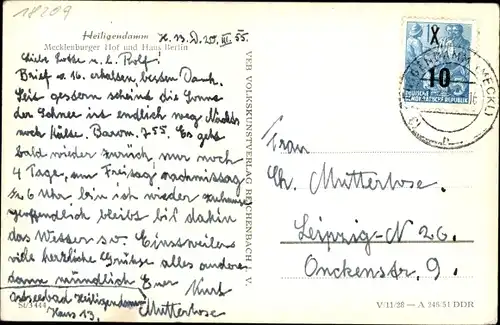 18209
Heiligendamm H. 13. D. 20. III. 55.
Mecklenburger Hof und Haus Berlin
Liebe Lotte u. l. Rolf!
Brief v. 16. erhalten, besten Dank.
Seit gestern scheint die Sonne
der Schnee ist endlich weg Nachts
noch Kälte. Barom. 755. Es geht
bald wieder zurück nur noch
4 Tage, am Freitag nachmittag
6 Uhr bin ich wieder zuhause
hoffendlich bleibt bis dahin
das Wetter so. Einstweilen
viele herzliche Grüße alles andere
dann mündlich Euer Kurt
Ostseebad Heiligendamm
St/3444 Haus 13. Mutterlose
VEB VOLKSKUNSTVERLAG REICHENBACH I. V.
X
10
DEUTSCHE
DEMOKRATISCHE REPUBLIK
HEILIGENDAMM (MECKL)
Frau
Ch. Mutterlose.
Leipzig-N 26.
Onckenstr. 9.
V/11/28 — A 246/54 DDR